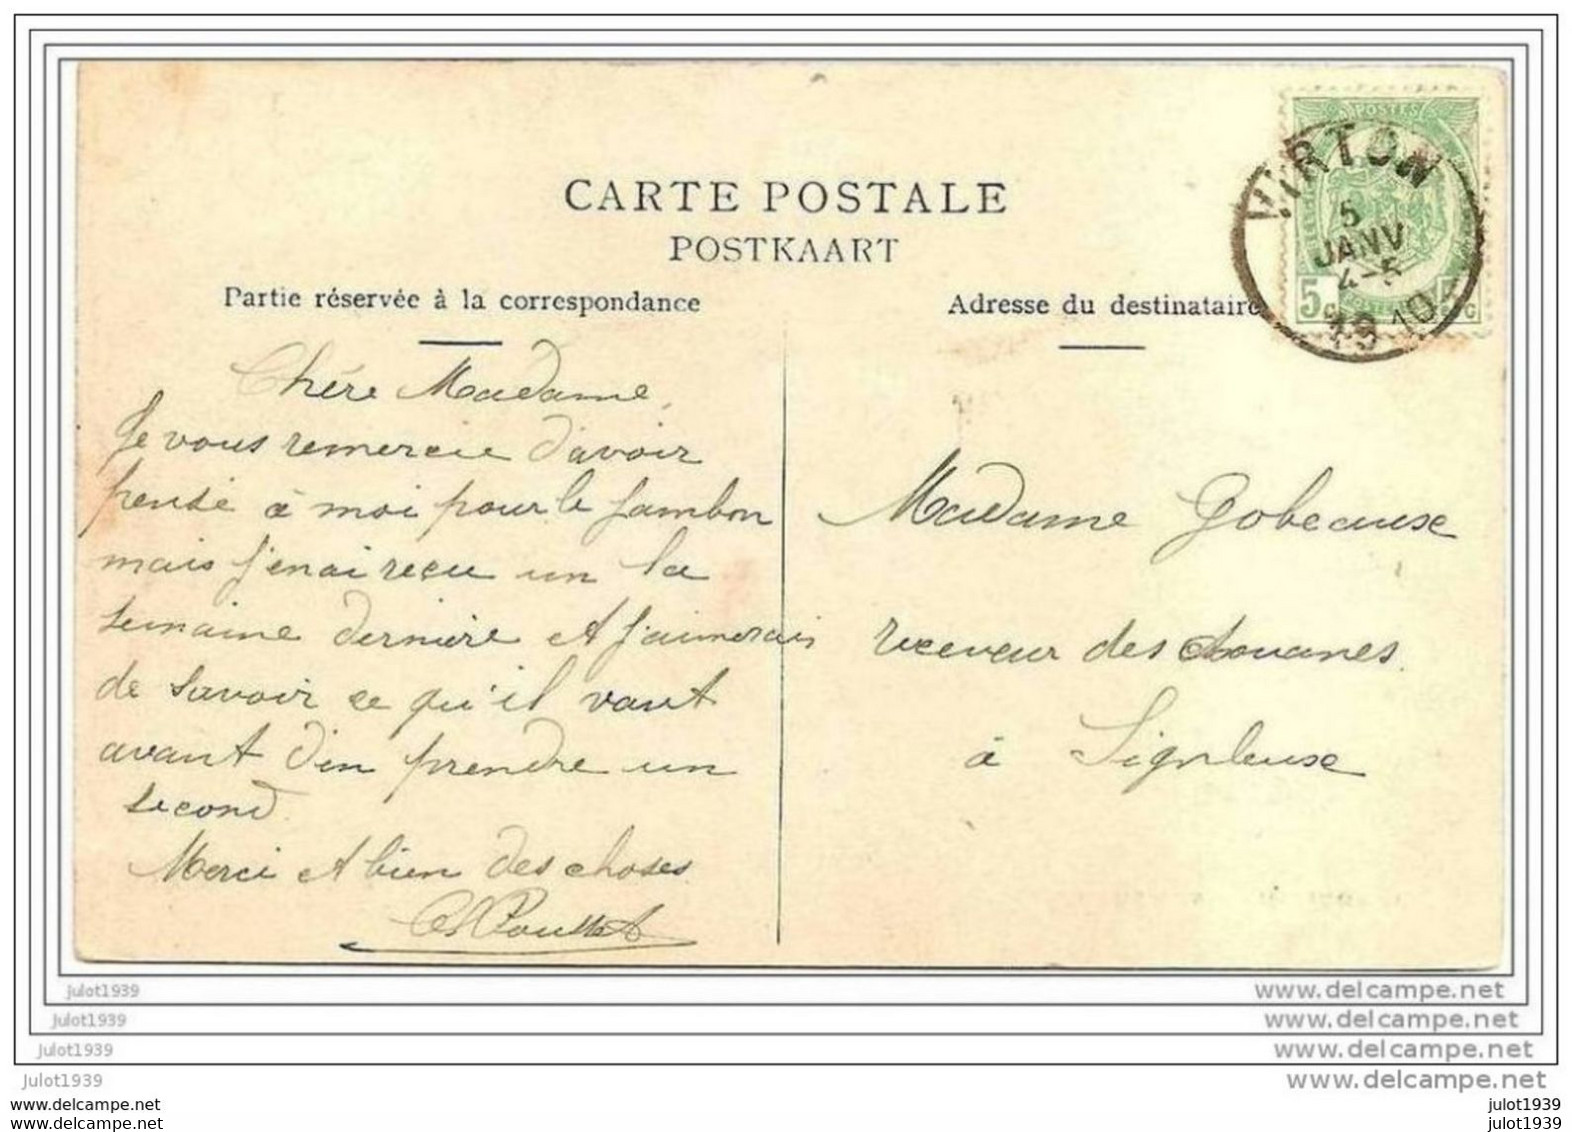 CARTE POSTALE
POSTKAART
Partie réservée à la correspondance
Adresse du destinataire
POSTES
VIRTON
5
JANV
4-5
1910
5 C
POSTERIJEN
Chére Madame,
Je vous remercie d'avoir
pensé à moi pour le jambon
mais j'en ai reçu un la
semaine dernière et j'aimerais
de savoir ce qu'il vaut
avant d'en prendre un
second.
Merci et bien des choses
Madame Gobeause
receveur des douanes.
à Signleuse
julot1939
www.delcampe.net
julot1939
www.delcampe.net
julot1939
www.delcampe.net
julot1939
www.delcampe.net
www.delcampe.net
julot1939
www.delcampe.net
julot1939